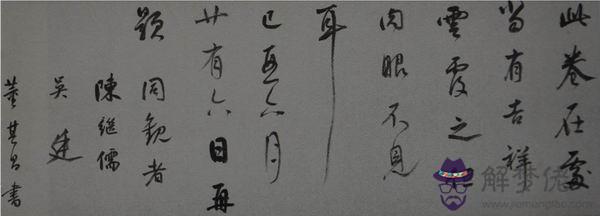 此卷在處
當有吉祥
雲霞之
肉眼不見
耳
己酉六月
廿有六日再
題 同觀者
陳繼儒
吳廷
董其昌書
解夢佬
www.jiemenglao.com